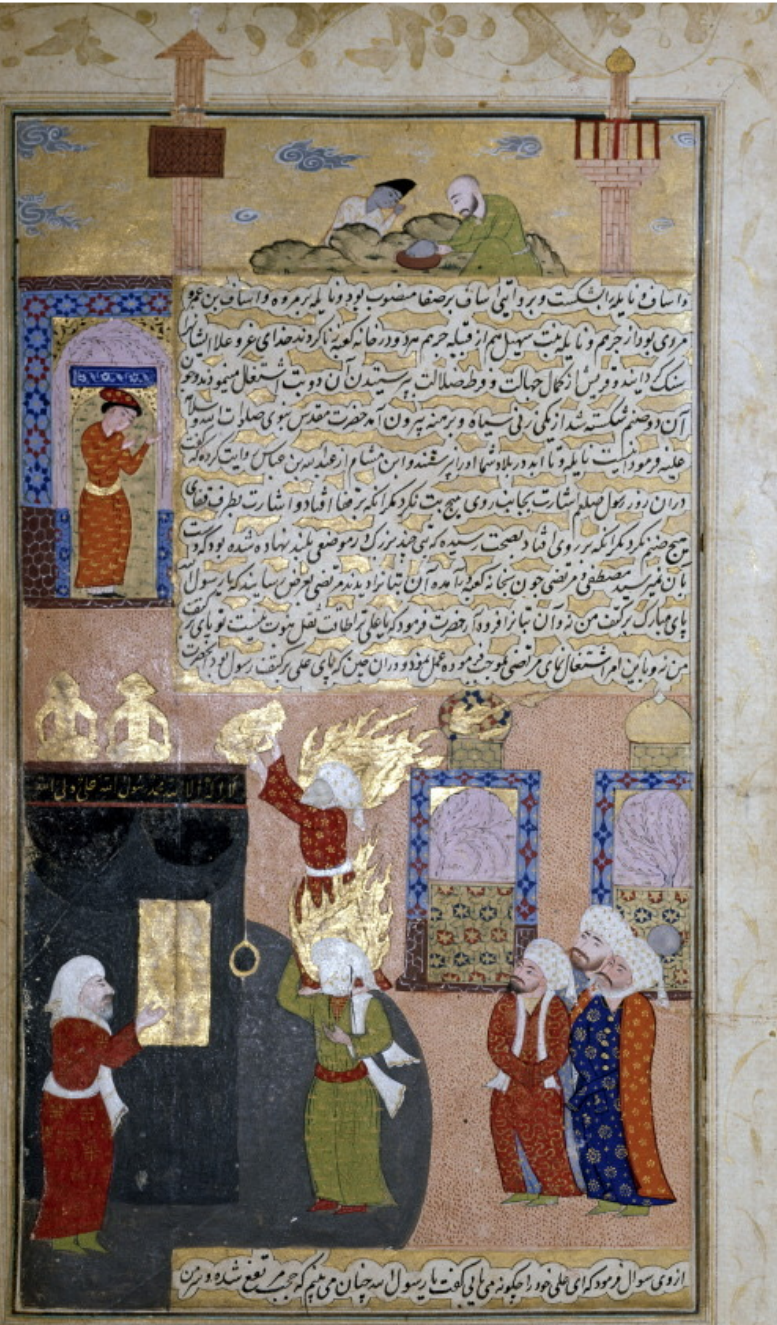 و اساف و نایله را بشکست و بروایتی اساف بر صفا منصوب بود و نایله بر مروه و اساف بن عمرو
مردی بود از جرهم و نایله بنت سهیل هم از قبیله جرهم و در خانه کعبه زنا کردند خدای عز و علا ایشانرا
سنک کردانید و قریش از کمال جهالت و فرط ضلالت به پرستیدن آن دو بت اشتغال مینمودند و چون
آن دو صنم شکسته شد از یکی زنی سیاه و برهنه بیرون آمد حضرت مقدس نبوی صلوات الله و سلامه
علیه فرمود اینست نایله و تا ابد در بلاد شما او را نپرستند و ابن هشام از عبدالله بن عباس روایت کرده که کفت
در ان روز رسول صلعم اشارت بجانب روی هیچ بت نکرد مکر آنکه بر قفا افتاد و اشارت بطرف قفای
هیچ صنم نکرد مکر آنکه بر روی افتاد بصحت رسیده که بتی چند بزرک در موضعی بلند نهاده شده بود که دست
بآن نمیرسید مصطفی و مرتضی چون بخانه کعبه درآمده آن بتانرا دیدند مرتضی بعرض رسانید که یا رسول الله
پای مبارک بر کتف من نه و آن بتانرا فرود آر حضرت فرمود که یا علی ترا طاقت ثقل نبوت نیست تو پای بر کتف
من نه و باین امر اشتغال نمای مرتضی بموجب فرموده عمل نمود و در ان حین که پای علی بر کتف رسول بود آنحضرت
لا اله الا الله محمد رسول الله علی ولی الله
از وی سوال فرمود که ای علی خود را چکونه می یابی کفت یا رسول الله چنان می بینم که حجب مرتفع شده و سر من